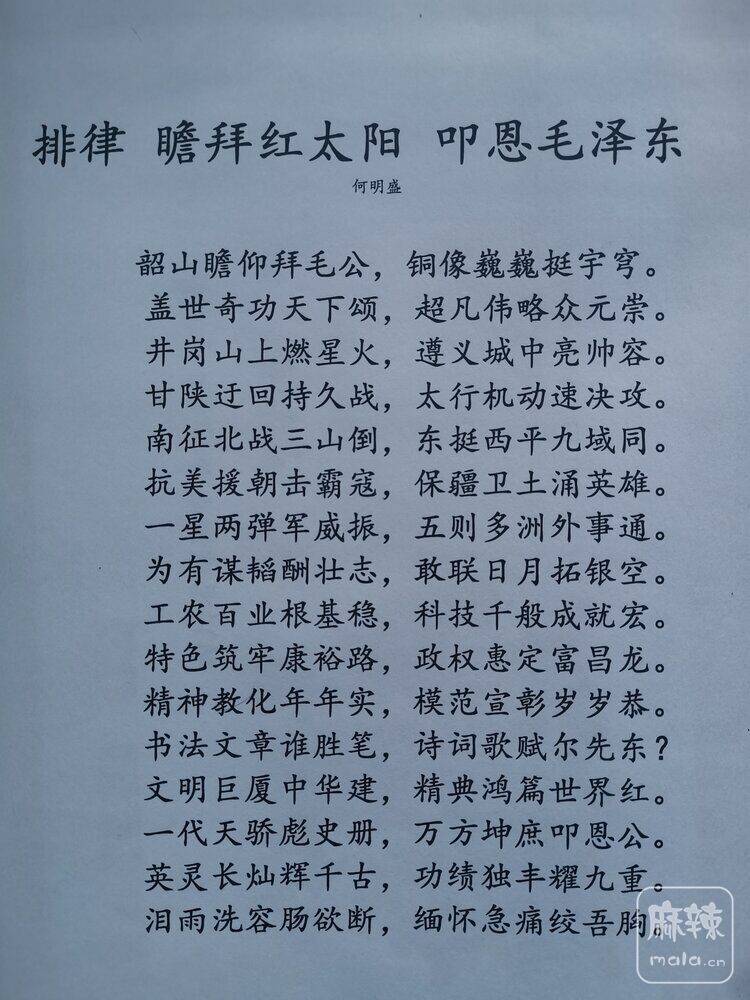 排律 瞻拜红太阳 叩恩毛泽东
何明盛
韶山瞻仰拜毛公，铜像巍巍挺宇穹。
盖世奇功天下颂，超凡伟略众元崇。
井岗山上燃星火，遵义城中亮帅容。
甘陕迂回持久战，太行机动速决攻。
南征北战三山倒，东挺西平九域同。
抗美援朝击霸寇，保疆卫土涌英雄。
一星两弹军威振，五则多洲外事通。
为有谋韬酬壮志，敢联日月拓银空。
工农百业根基稳，科技千般成就宏。
特色筑牢康裕路，政权惠定富昌龙。
精神教化年年实，模范宣彰岁岁恭。
书法文章谁胜笔，诗词歌赋尔先东？
文明巨厦中华建，精典鸿篇世界红。
一代天骄彪史册，万方坤庶叩恩公。
英灵长灿辉千古，功绩独丰耀九重。
泪雨洗容肠欲断，缅怀急痛绞吾胸。
麻辣
mala.cn